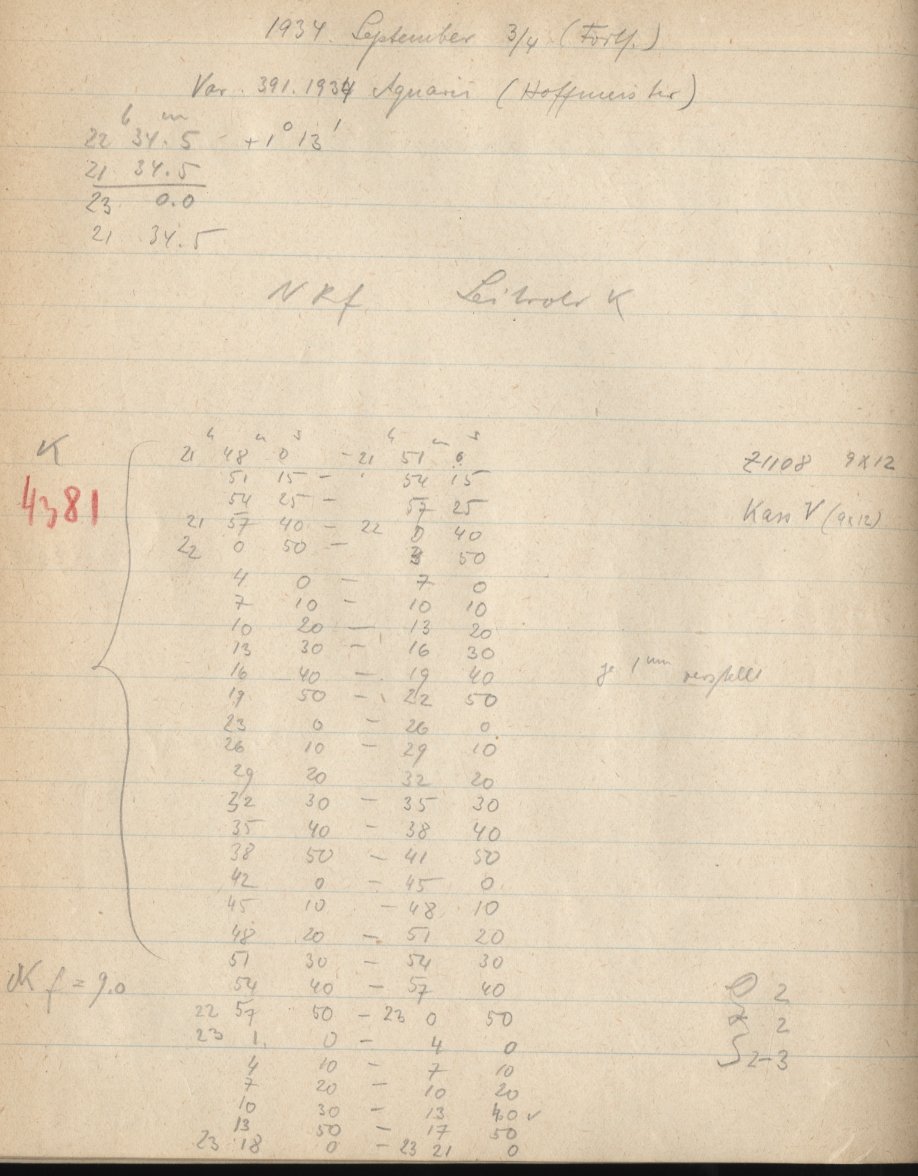 1934 September 3/4 (Forts.)
Var. 391.1934 Aquarii (Hoffmeister)
22 h 34.5 m +1° 13'
21 34.5
23 0.0
21 34.5
NRf Leitrohr K
K
4381
h m s h m s
21 48 0 - 21 51 0 Z1108 9x12
51 15 - 54 15
54 25 - 57 25 Kass V (9x12)
21 57 40 - 22 0 40
22 0 50 - 3 50
4 0 - 7 0
7 10 - 10 10
10 20 - 13 20
13 30 - 16 30
16 40 - 19 40 je 1 mm verstellt
19 50 - 22 50
23 0 - 26 0
26 10 - 29 10
29 20 32 20
32 30 - 35 30
35 40 - 38 40
38 50 - 41 50
42 0 - 45 0
45 10 - 48 10
48 20 - 51 20
51 30 - 54 30
f = 9.0 54 40 - 57 40 2
22 57 50 - 23 0 50 2
23 1 0 - 4 0 S 2-3
4 10 - 7 10
7 20 - 10 20
10 30 - 13 40 ✓
13 50 - 17 50
23 18 0 - 23 21 0